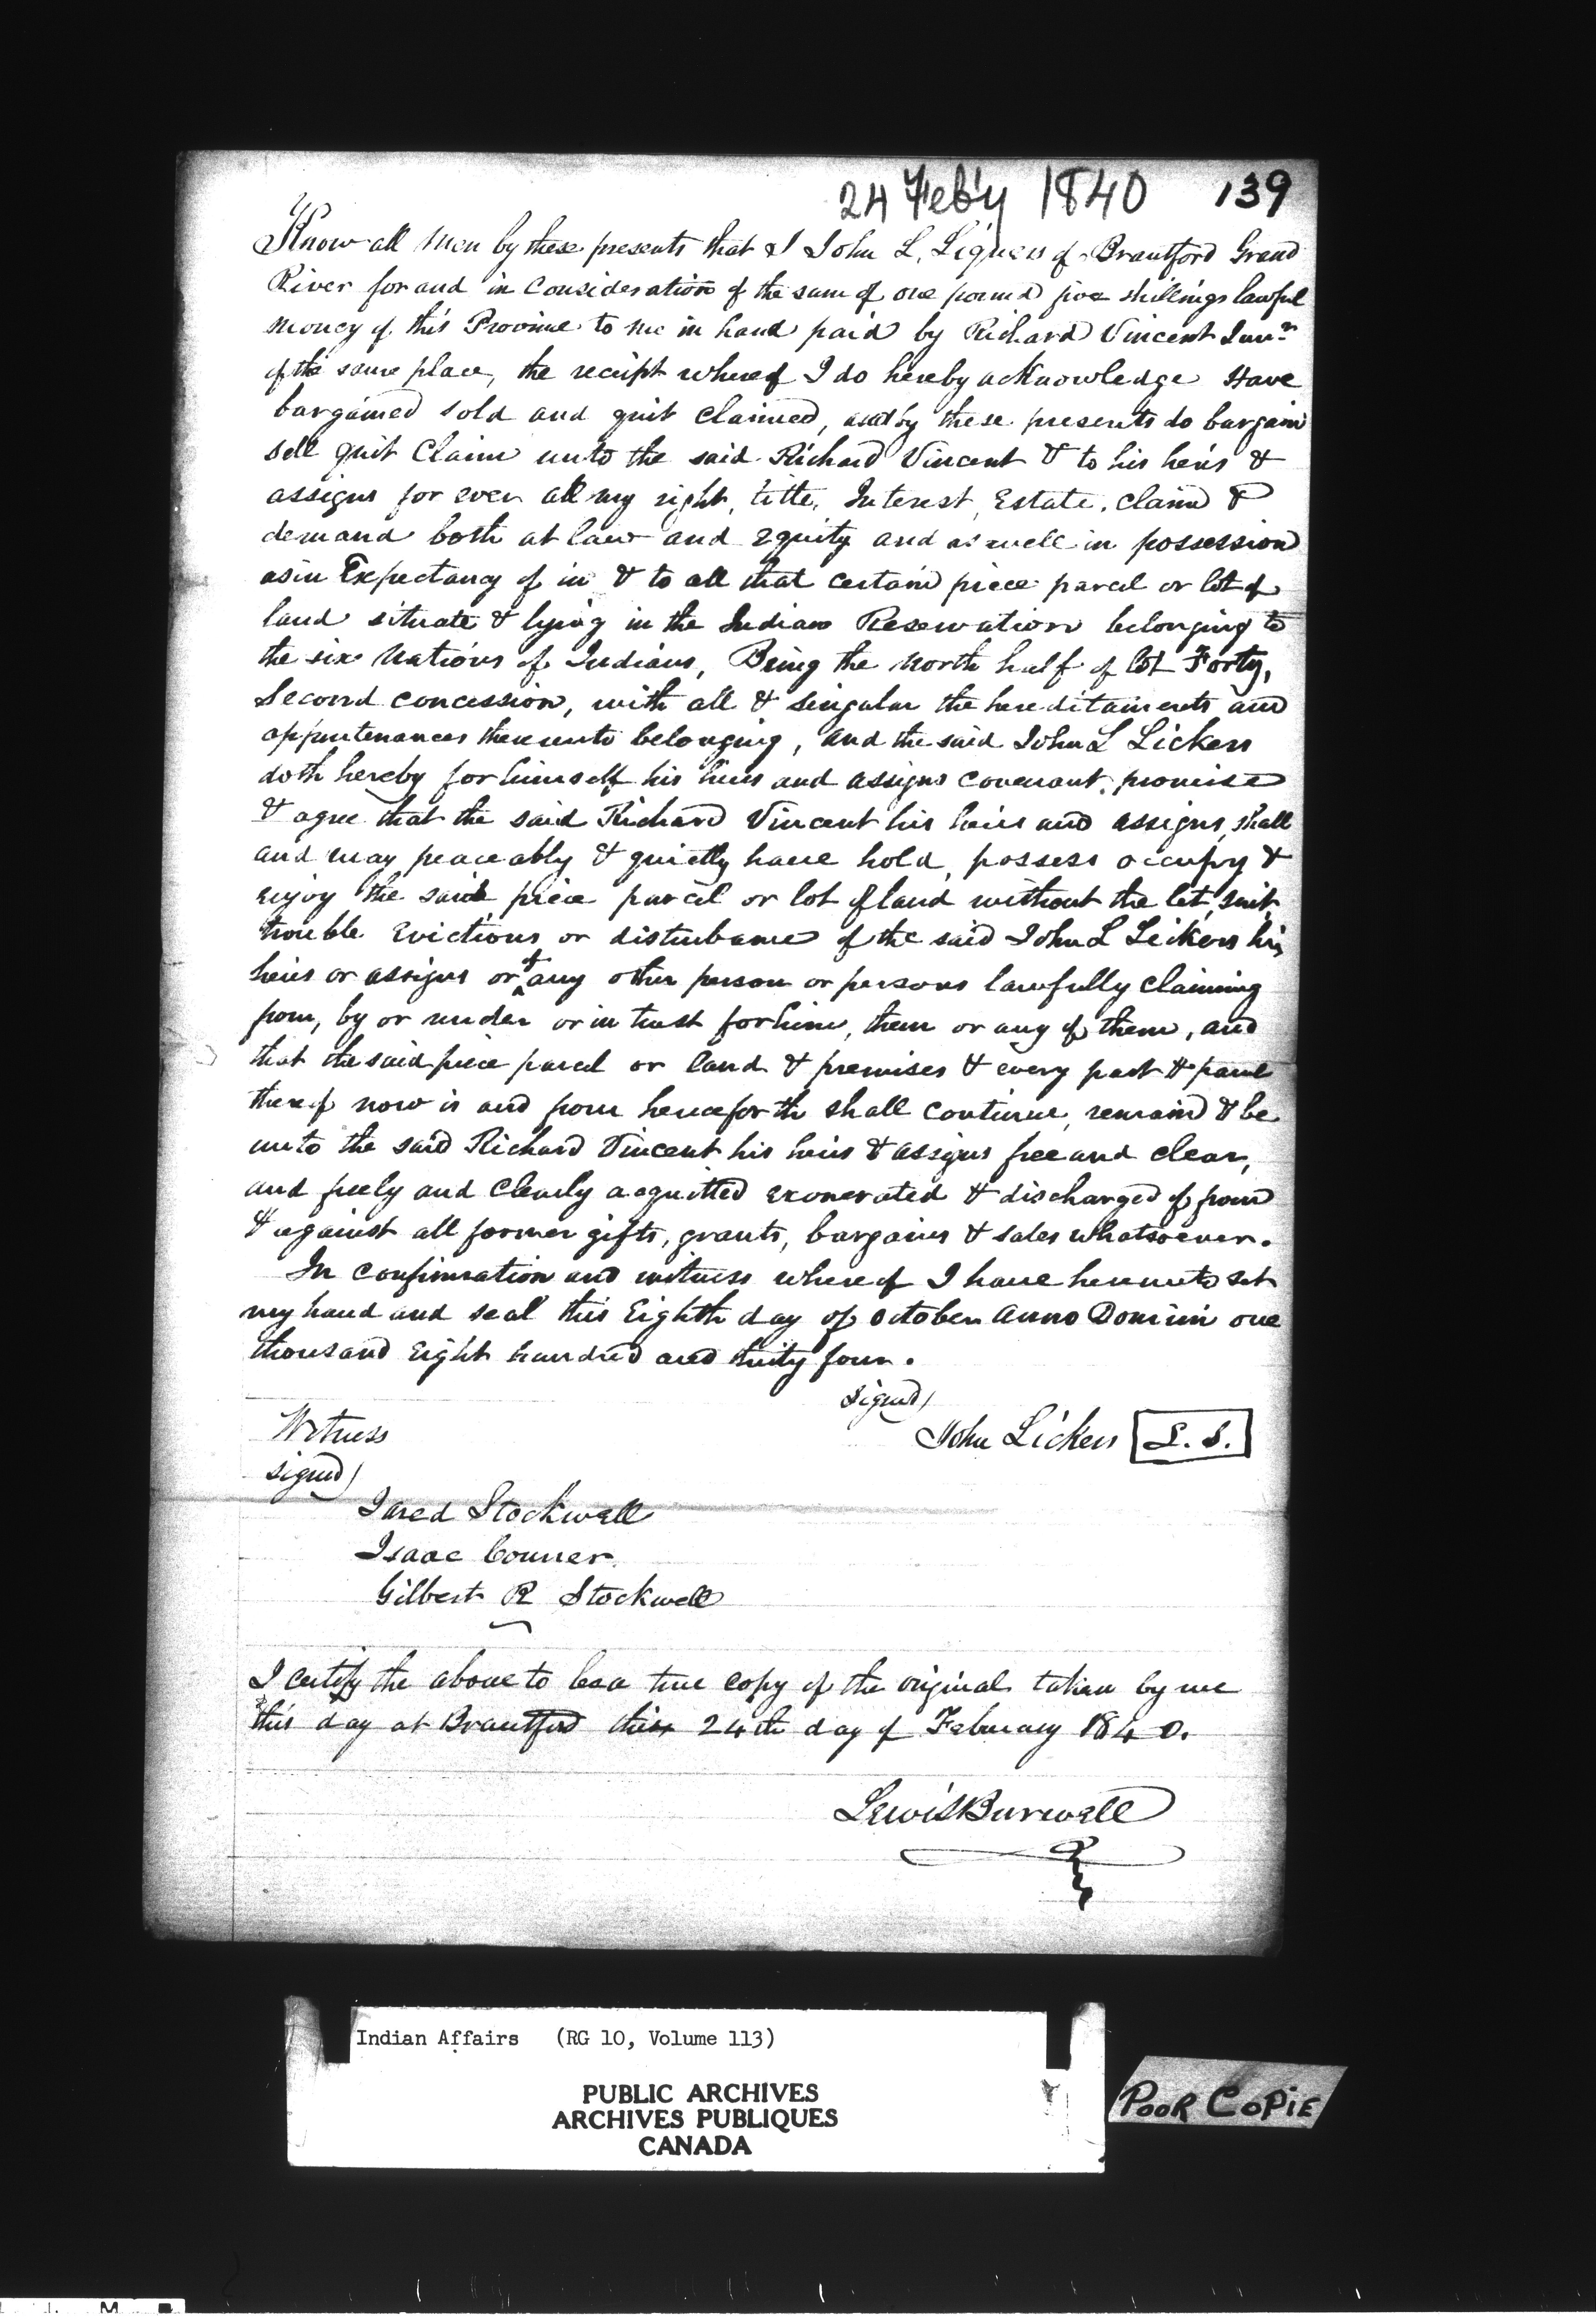 24 Feb'y 1840 139
Know all Men by these presents that I John L. Liquers of Brantford Grand
River for and in Consideration of the sum of one pound five shillings lawful
money of this Province to me in hand paid by Richard Vincent Junr
of the same place, the receipt whereof I do hereby acknowledge Have
bargained sold and quit claimed, and by these presents do bargain
sell quit Claim unto the said Richard Vincent & to his heirs &
assigns for ever all my right, title, Interest, Estate, claim &
demand both at law and Equity and as well in possession
as in Expectancy of in & to all that certain piece parcel or lot of
land situate & lying in the Indian Reservation belonging to
the six Nations of Indians, Being the North half of lot Forty,
Second concession, with all & singular the hereditaments and
appurtenances thereunto belonging, and the said John L Lickers
doth hereby for himself his heirs and assigns covenant, promise
& agree that the said Richard Vincent his heirs and assigns, shall
and may peaceably & quietly have hold, possess occupy &
enjoy the said piece parcel or lot of land without the let, suit,
trouble Evictions or disturbance of the said John L Lickers his
heirs or assigns or of any other person or persons lawfully claiming
from, by or under or in trust for him, them or any of them, and
that the said piece parcel or land & premises & every part & parcel
thereof now is and from henceforth shall continue, remain & be
unto the said Richard Vincent his heirs & assigns free and clear,
and freely and clearly acquitted exonerated & discharged of from
& against all former gifts, grants, bargains & sales whatsoever.
In confirmation and witness whereof I have hereunto set
my hand and seal this Eighth day of October Anno Domini one
thousand Eight hundred and thirty four.
signed)
Witness John Lickers L. S.
signed)
Jared Stockwell
Isaac Conner
Gilbert R Stockwell
I certify the above to be a true copy of the original taken by me
this day at Brantford this 24th day of February 1840.
Lewis Burwell
Indian Affairs (RG 10, Volume 113)
PUBLIC ARCHIVES
ARCHIVES PUBLIQUES
CANADA
POOR COPIE